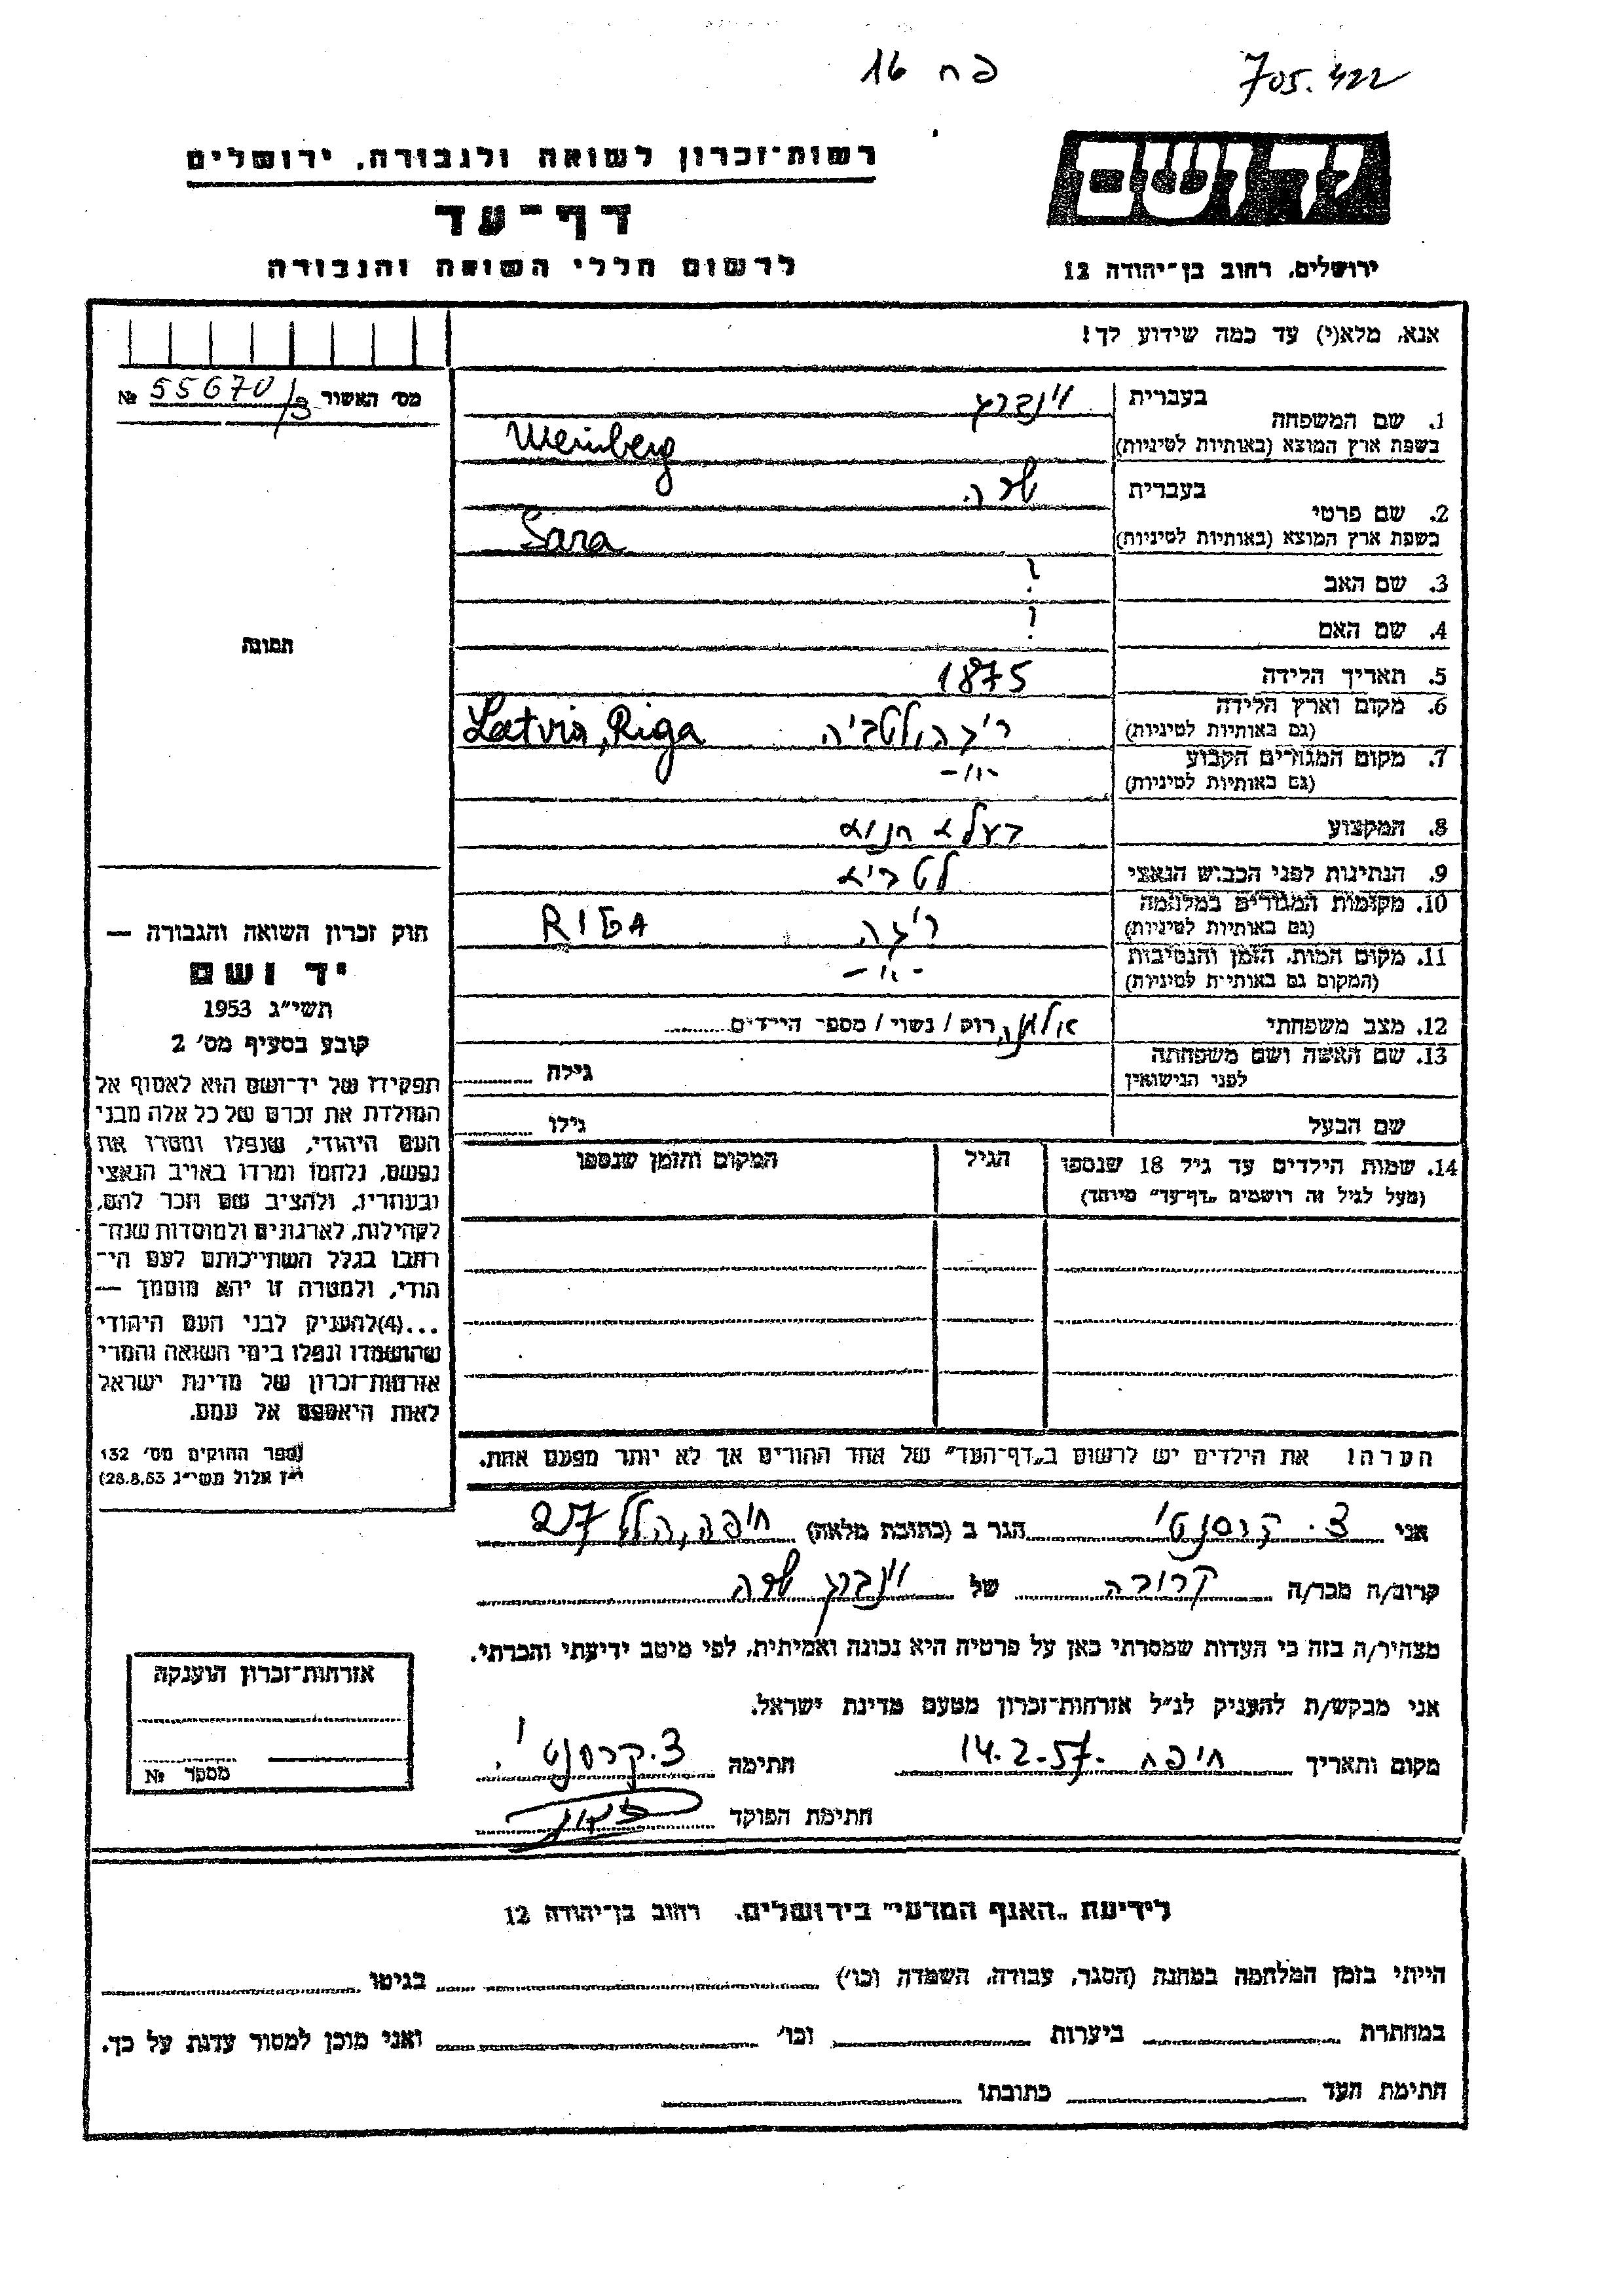 פח 16
705.422
רשות־זכרון לשואה ולגבורה, ירושלים
דף־עד
לרשום חללי השואה והגבורה
יד ושם
ירושלים, רחוב בן־יהודה 12
אנא, מלא(י) עד כמה שידוע לך!
מס' האשור 55670/3 №
תמונה
חוק זכרון השואה והגבורה —
יד ושם
תשי״ג 1953
קובע בסעיף מס' 2
תפקידו של יד־ושם הוא לאסוף אל
המולדת את זכרם של כל אלה מבני
העם היהודי, שנפלו ומסרו את
נפשם, נלחמו ומרדו באויב הנאצי
ובעוזריו, ולהציב שם וזכר להם,
לקהילות, לארגונים ולמוסדות שנח־
רבו בגלל השתייכותם לעם הי־
הודי, ולמטרה זו יהא מוסמך —
...(4)להעניק לבני העם היהודי
שהושמדו ונפלו בימי השואה והמרי
אזרחות־זכרון של מדינת ישראל
לאות היאספם אל עמם.
(ספר החוקים מס' 132
י״ז אלול תשי״ג 28.8.53)
1. שם המשפחה בעברית וינברג
בשפת ארץ המוצא (באותיות לטיניות) Weinberg
2. שם פרטי בעברית שרה
בשפת ארץ המוצא (באותיות לטיניות) Sara
3. שם האב ?
4. שם האם ?
5. תאריך הלידה 1875
6. מקום וארץ הלידה ריגה, לטביה Latvia, Riga
(גם באותיות לטיניות)
7. מקום המגורים הקבוע -״-
(גם באותיות לטיניות)
8. המקצוע בעלא חנוא
9. הנתינות לפני הכבוש הנאצי לטביא
10. מקומות המגורים במלחמה ריגה RIGA
(גם באותיות לטיניות)
11. מקום המות, הזמן והנסיבות -״-
(המקום גם באותיות לטיניות)
12. מצב משפחתי אלמנה, רוק / נשוי / מספר הילדים
13. שם האשה ושם משפחתה גילה
לפני הנישואין
שם הבעל גילו
14. שמות הילדים עד גיל 18 שנספו הגיל המקום והזמן שנספו
(מעל לגיל זה רושמים „דף־עד״ מיוחד)
הערה! את הילדים יש לרשום ב„דף־העד״ של אחד ההורים אך לא יותר מפעם אחת.
אני צ. קרסנטי הגר ב (כתובת מלאה) חיפה, הלל 27
קרוב/ה מכר/ה קרובה של וינברג שרה
מצהיר/ה בזה כי העדות שמסרתי כאן על פרטיה היא נכונה ואמיתית, לפי מיטב ידיעתי והכרתי.
אני מבקש/ת להעניק לנ״ל אזרחות־זכרון מטעם מדינת ישראל.
מקום ותאריך חיפה 14.2.57 חתימה צ. קרסנטי
חתימת הפוקד
אזרחות־זכרון הוענקה
מספר №
לידיעת „האגף המדעי״ בירושלים. רחוב בן־יהודה 12
הייתי בזמן המלחמה במחנה (הסגר, עבודה, השמדה וכו') בגיטו
במחתרת ביערות וכו' ואני מוכן למסור עדות על כך.
חתימת העד כתובתו